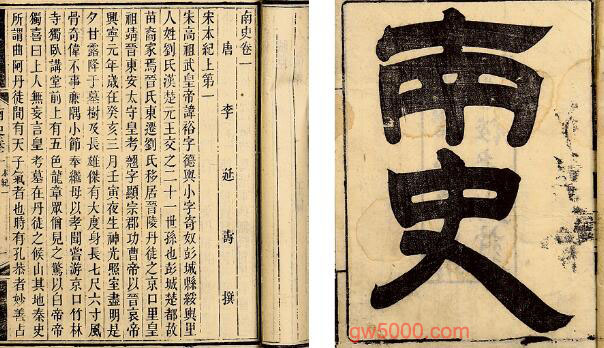 南史
南史卷一
唐 李 延 壽 撰
宋本紀上第一
宋高祖武皇帝諱裕字德輿小字寄奴彭城縣綏輿里
人姓劉氏漢楚元王交之二十一世孫也彭城楚都故
苗裔家焉晉氏東遷劉氏移居晉陵丹徒之京口里皇
祖靖晉東安太守皇考翹字顯宗郡功曹帝以晉哀帝
興寧元年歲在癸亥三月壬寅夜生神光照室盡明是
夕甘露降于墓樹及長雄傑有大度身長七尺六寸風
骨奇偉不事廉隅小節奉繼母以孝聞嘗游京口竹林
寺獨臥講堂前上有五色龍章眾僧見之驚以白帝帝
獨喜曰上人無妄言皇考墓在丹徒之候山其地秦史
所謂曲阿丹徒間有天子氣者也時有孔恭者妙善占
gw5000.com